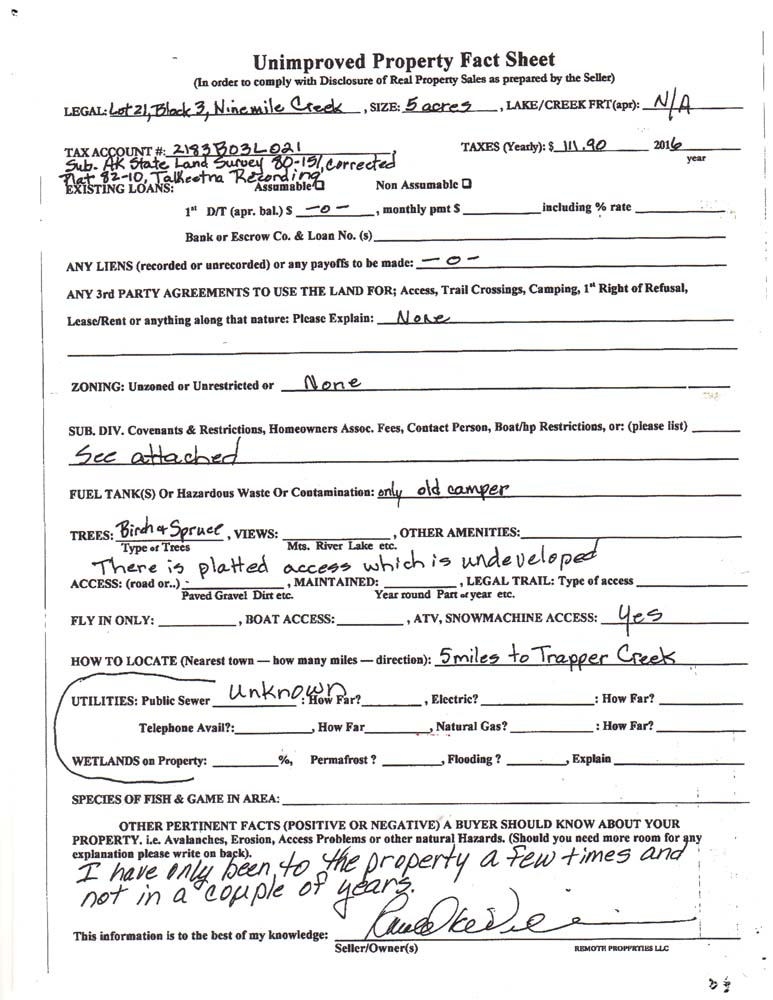 Unimproved Property Fact Sheet
(In order to comply with Disclosure of Real Property Sales as prepared by the Seller)
LEGAL: Lot 21, Block 3, Ninemile Creek, SIZE: 5 acres, LAKE/CREEK FRT(apr): N/A
TAX ACCOUNT #: 2183B03L021, TAXES (Yearly): $ 111.90 2016
year
Sub. AK State Land Survey 80-151, corrected
Plat 82-10, Talkeetna Recording
EXISTING LOANS: Assumable Non Assumable
1st D/T (apr. bal.) $ -0-, monthly pmt $ including % rate
Bank or Escrow Co. & Loan No. (s)
ANY LIENS (recorded or unrecorded) or any payoffs to be made: -0-
ANY 3rd PARTY AGREEMENTS TO USE THE LAND FOR; Access, Trail Crossings, Camping, 1st Right of Refusal,
Lease/Rent or anything along that nature: Please Explain: None
ZONING: Unzoned or Unrestricted or None
SUB. DIV. Covenants & Restrictions, Homeowners Assoc. Fees, Contact Person, Boat/hp Restrictions, or: (please list)
See attached
FUEL TANK(S) Or Hazardous Waste Or Contamination: only old camper
TREES: Birch & Spruce, VIEWS: , OTHER AMENITIES:
Type of Trees Mts. River Lake etc.
There is platted access which is undeveloped
ACCESS: (road or..) - , MAINTAINED: , LEGAL TRAIL: Type of access
Paved Gravel Dirt etc. Year round Part of year etc.
FLY IN ONLY: , BOAT ACCESS: , ATV, SNOWMACHINE ACCESS: Yes
HOW TO LOCATE (Nearest town — how many miles — direction): 5 miles to Trapper Creek
UTILITIES: Public Sewer Unknown : How Far? , Electric? : How Far?
Telephone Avail?: , How Far , Natural Gas? : How Far?
WETLANDS on Property: %, Permafrost ? , Flooding ? , Explain
SPECIES OF FISH & GAME IN AREA:
OTHER PERTINENT FACTS (POSITIVE OR NEGATIVE) A BUYER SHOULD KNOW ABOUT YOUR
PROPERTY. i.e. Avalanches, Erosion, Access Problems or other natural Hazards. (Should you need more room for any
explanation please write on back).
I have only been to the property a few times and
not in a couple of years.
This information is to the best of my knowledge:
Seller/Owner(s) REMOTE PROPERTIES LLC